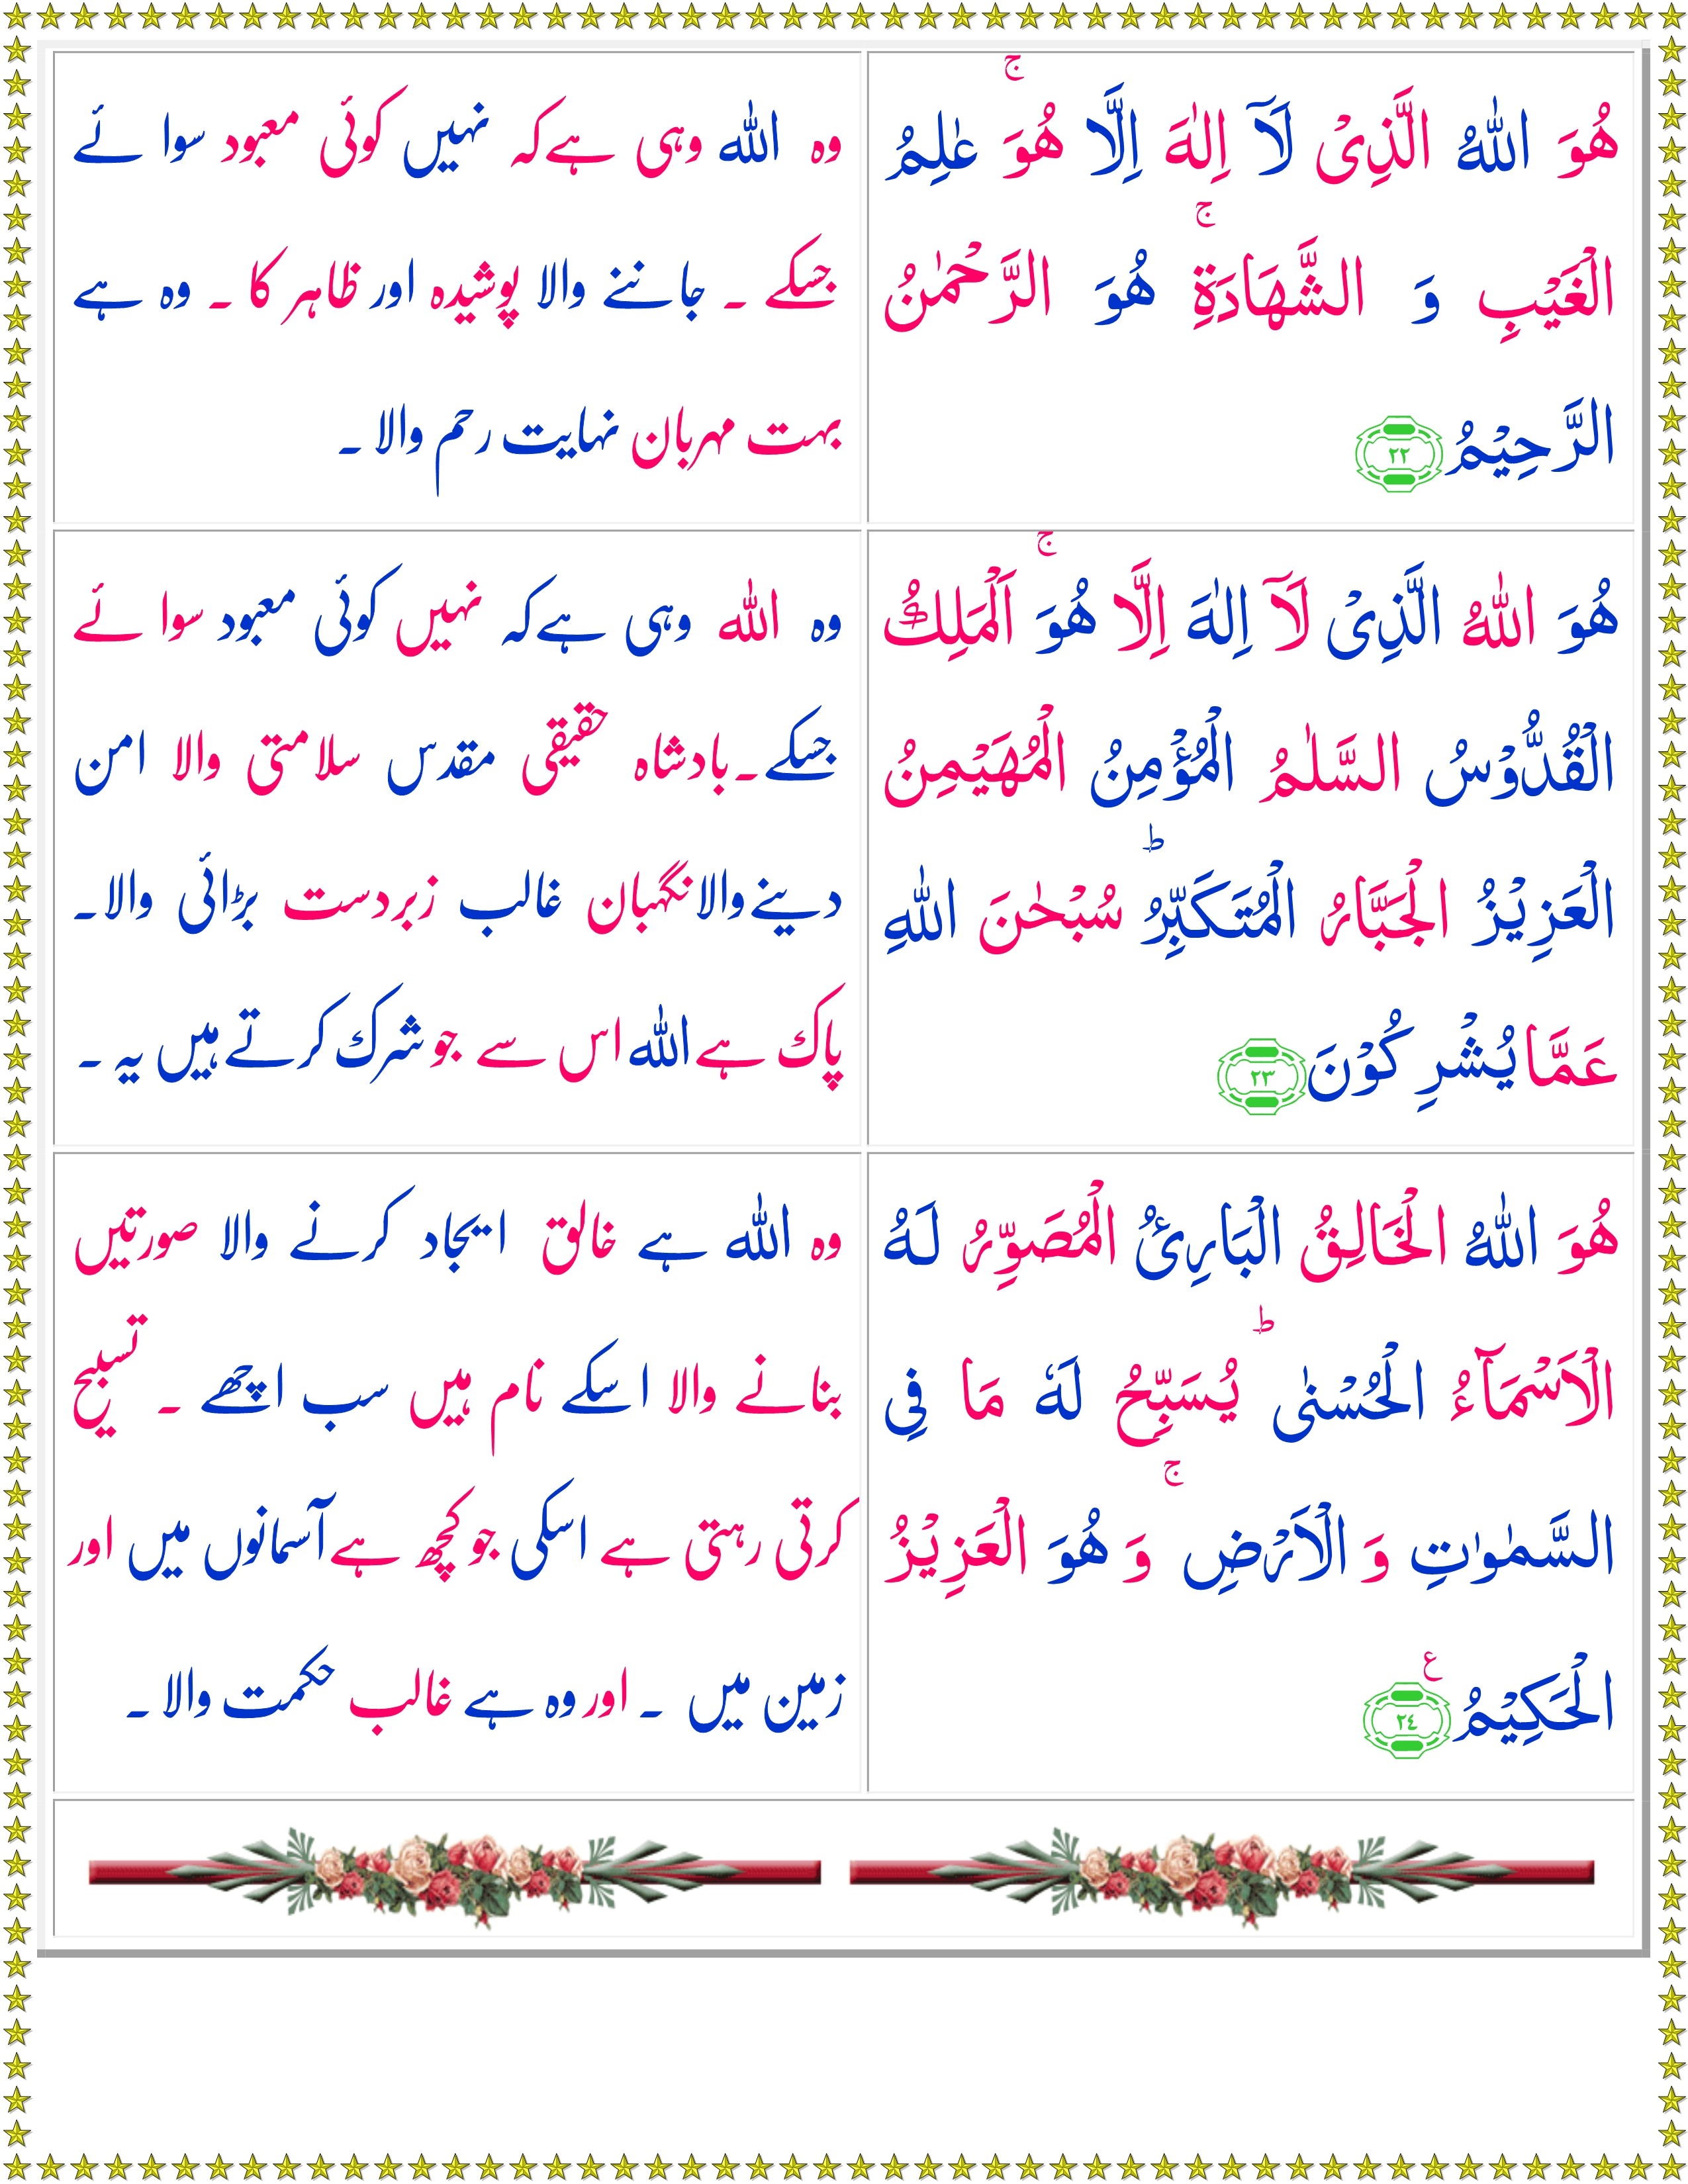 هُوَ اللّٰهُ الَّذِىْ لَاۤ اِلٰهَ اِلَّا هُوَ ۚ عٰلِمُ
الْغَيْبِ وَ الشَّهَادَةِ ۚ هُوَ الرَّحْمٰنُ
الرَّحِيْمُ ٢٢
وہ اللہ وہی ہےکہ نہیں کوئی معبود سوا ئے
جسکے ۔ جاننے والا پوشیدہ اور ظاہر کا ۔ وہ ہے
بہت مہربان نہایت رحم والا ۔
هُوَ اللّٰهُ الَّذِىْ لَاۤ اِلٰهَ اِلَّا هُوَ ۚ اَلْمَلِكُ
الْقُدُّوْسُ السَّلٰمُ الْمُؤْمِنُ الْمُهَيْمِنُ
الْعَزِيْزُ الْجَبَّارُ الْمُتَكَبِّرُ ؕ سُبْحٰنَ اللّٰهِ
عَمَّا يُشْرِكُوْنَ ٢٣
وہ اللہ وہی ہےکہ نہیں کوئی معبود سوا ئے
جسکے۔بادشاہ حقیقی مقدس سلامتی والا امن
دینےوالانگہبان غالب زبردست بڑائی والا۔
پاک ہےاللہ اس سے جو شرک کرتےہیں یہ ۔
هُوَ اللّٰهُ الْخَالِقُ الْبَارِئُ الْمُصَوِّرُ لَهُ
الْاَسْمَآءُ الْحُسْنٰى ؕ يُسَبِّحُ لَهٗ مَا فِى
السَّمٰوٰتِ وَ الْاَرْضِ ۚ وَ هُوَ الْعَزِيْزُ
الْحَكِيْمُ ٢٤ ع
وہ اللہ ہے خالق ایجاد کرنے والا صورتیں
بنانے والا اسکے نام ہیں سب اچھے ۔ تسبیح
کرتی رہتی ہے اسکی جو کچھ ہےآسمانوں میں اور
زمین میں ۔ اور وہ ہے غالب حکمت والا ۔